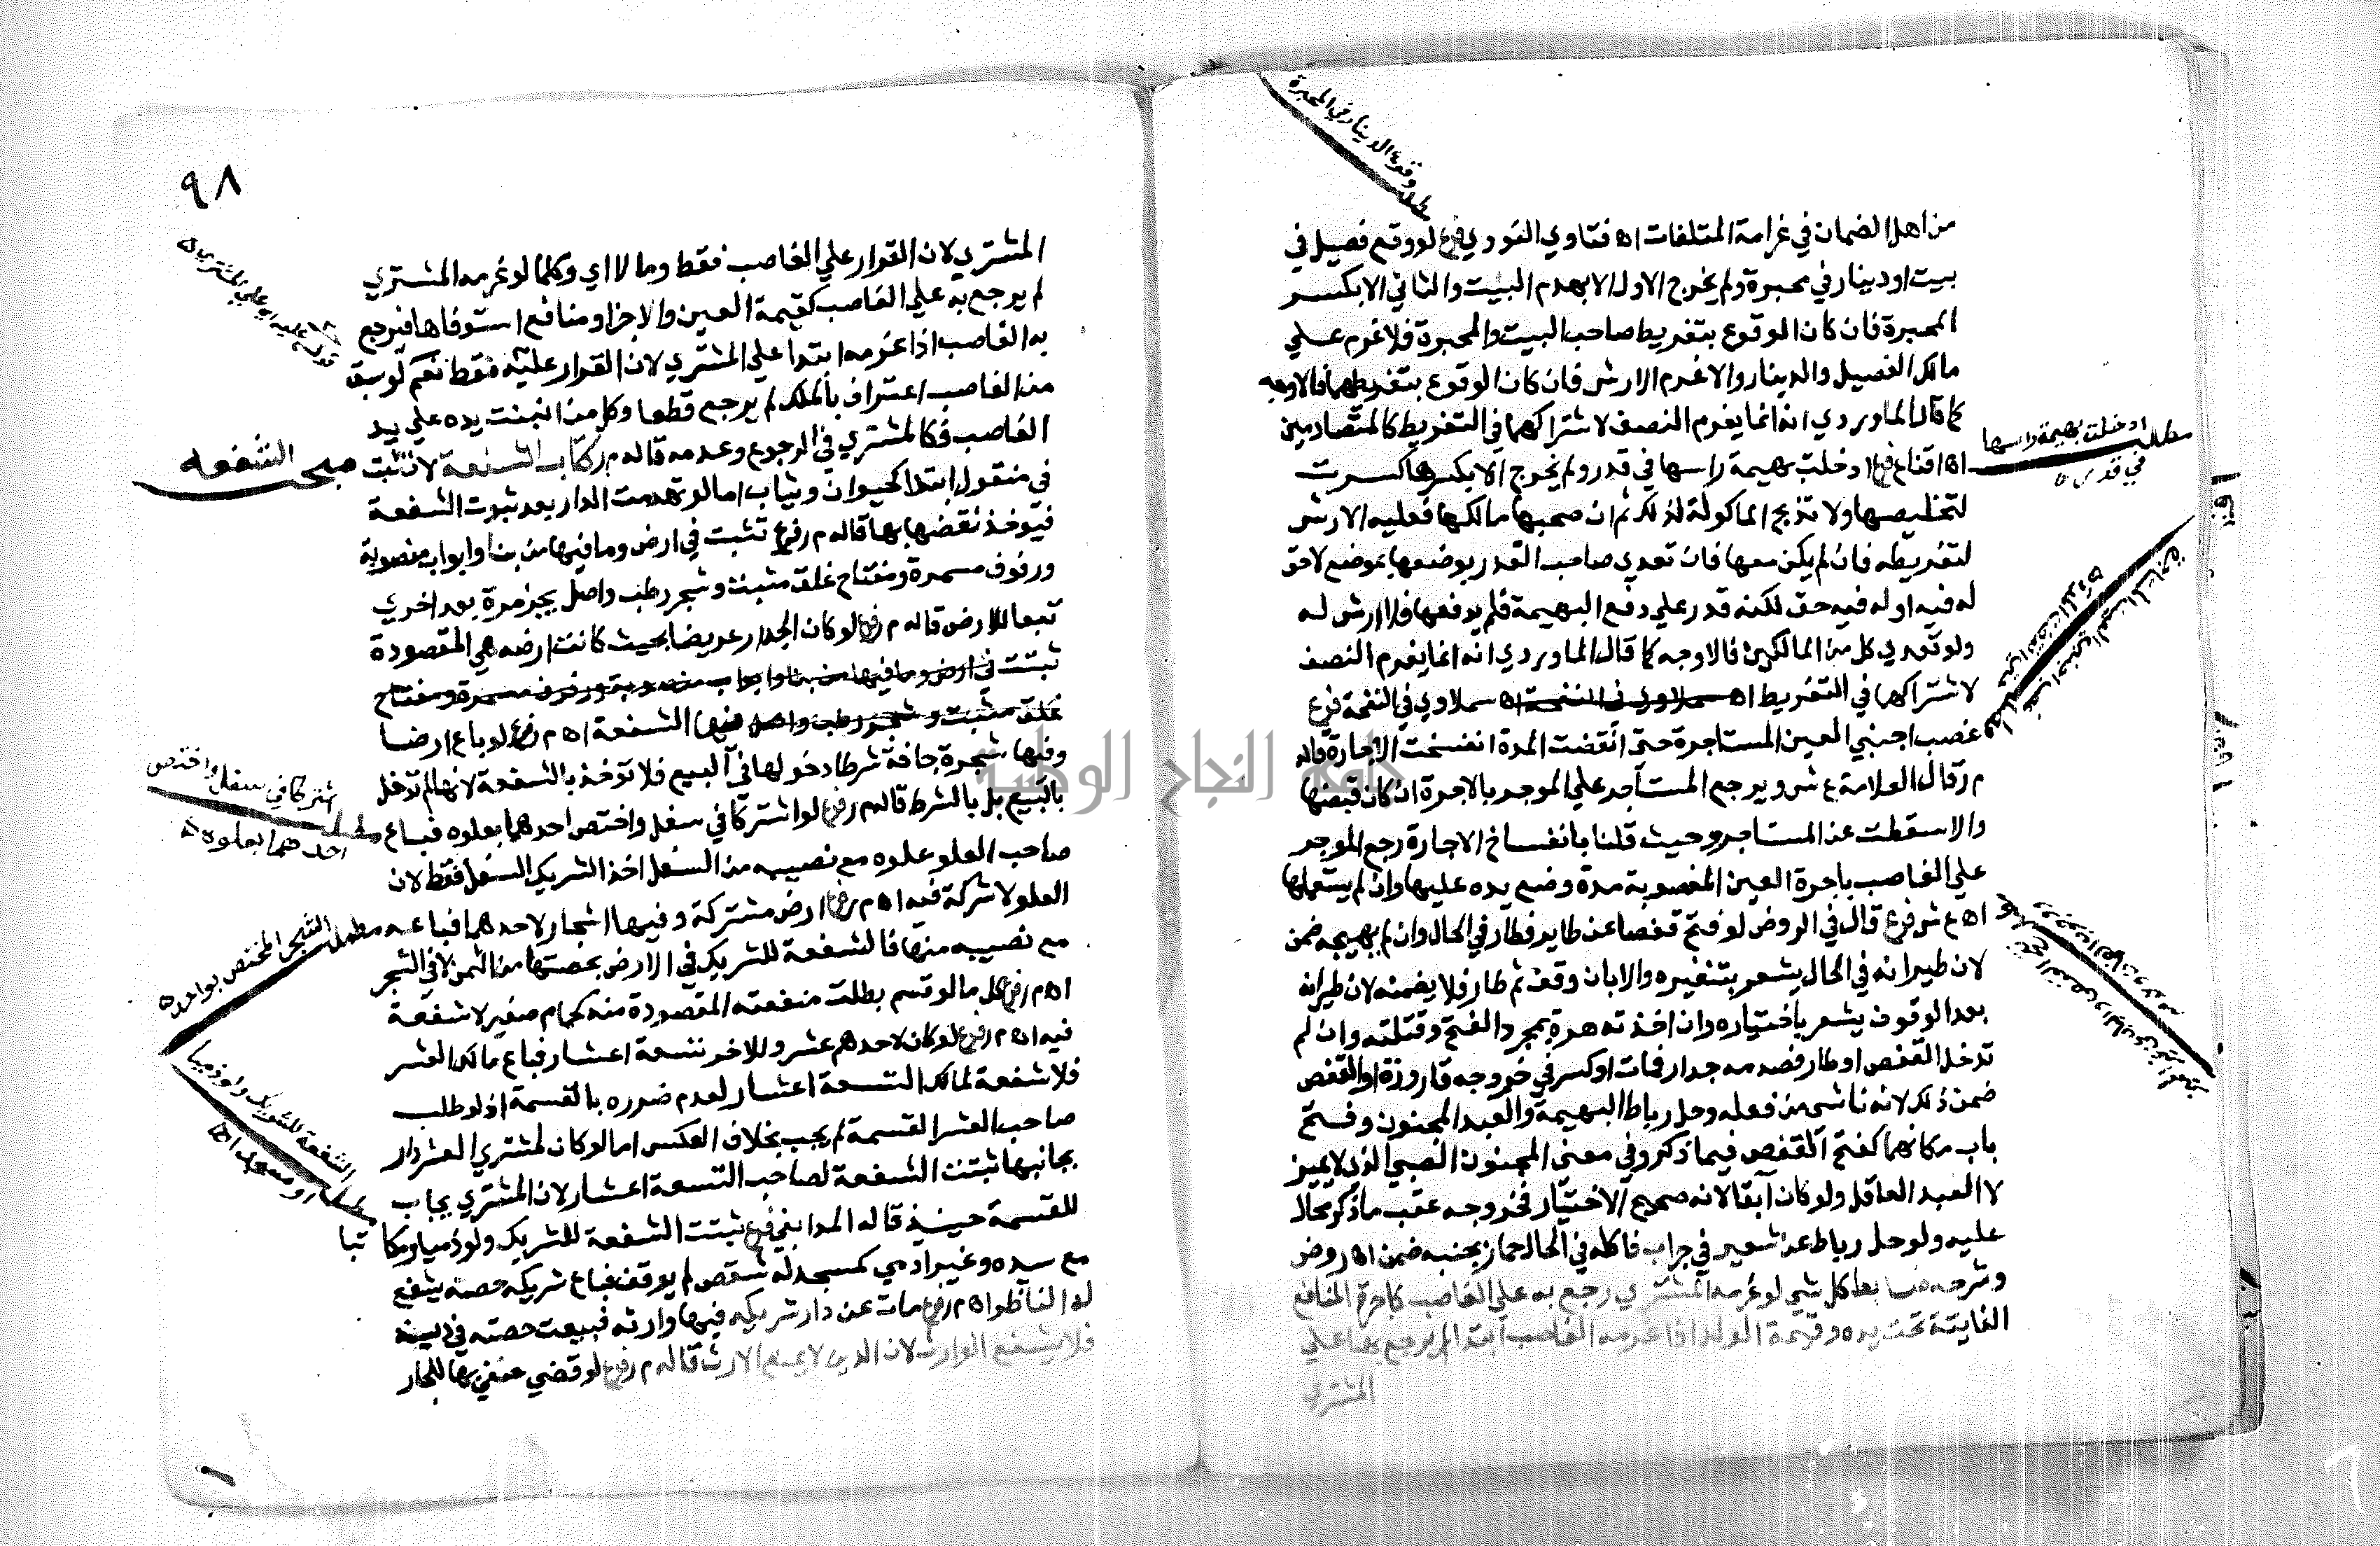 من اهل الضمان في غرامة المتلفات اه فتاوي النووي فرع لو وقع فصيل في
بيت او دينار في محبرة ولم يخرج الاول الا بهدم البيت والثاني الا بكسر
المحبرة فان كان الوقوع بتفريط صاحب البيت والمحبرة فلا غرم علي
مالك الفصيل والدينار والا غرم الارش فان كان الوقوع بتفريطهما فالاوجه
كما قال الماوردي انه انما يغرم النصف لاشتراكهما في التفريط كالمتصادمين
اه اقناع فرع ادخلت بهيمة راسها في قدر ولم يخرج الا بكسرها كسرت
لتخليصها ولا تذبح الماكولة لذلك ثم ان صحبها مالكها فعليه الارش
لتفريطه فان لم يكن معها فان تعدي صاحب القدر بوضعها بموضع لا حق
له فيه او له فيه حق لكنه قدر علي دفع البهيمة فلم يدفعها فلا ارش له
ولو تعدي كل من المالكين فالاوجه كما قال الماوردي انه انما يغرم النصف
لاشتراكهما في التفريط اه سملاوي في النفحة اه سملاوي في النفحة فرع
غصب اجنبي العين المستاجرة حتي انقضت المدة انفسخت الاجارة قاله
م ر قال العلامة ع ش ويرجع المستاجر علي الموجر بالاجرة ان كان قبضها
والا سقطت عن المستاجر وحيث قلنا بانفساخ الاجارة رجع الموجر
علي الغاصب باجرة العين المغصوبة مدة وضع يده عليها وان لم يستعملها
اه ع ش فرع قال في الروض لو فتح قفصا عن طاير فطار في الحال وان لم يهيجه ضمن
لان طيرانه في الحال يشعر بتنفيره والا بان وقف ثم طار فلا يضمنه لان طيرانه
بعد الوقوف يشعر باختياره وان اخذته هرة بمجرد الفتح وقتلته وان لم
تدخل القفص او طار فصدمه جدار فمات او كسر في خروجه قارورة او القفص
ضمن ذلك لانه ناشي من فعله وحل رباط البهيمة والعبد المجنون وفتح
باب مكانهما كفتح القفص فيما ذكر وفي معني المجنون الصبي الذي لا يميز
لا العبد العاقل ولو كان آبقا لانه صحيح الاختيار فخروجه عقب ما ذكر محال
عليه ولو حل رباط عن شعير في جراب فاكله في الحال حمار بجنبه ضمن اه روض
وشرحه كل شي لو غرمه المشتري رجع به علي الغاصب كاجرة المنافع
الفايتة تحت يده وقيمة الولد اذا غرمه الغاصب ابتدا لم يرجع بها علي
المشتري
وقوع الدينار في المحبرة
مطلب ادخلت بهيمة راسها
في قدر
٩٨
المشتري لان القرار علي الغاصب فقط وما لا اي وكلما لو غرمه المشتري
لم يرجع به علي الغاصب كقيمة العين والاجزا ومنافع استوفاها فيرجع
به الغاصب اذا غرمه ابتدا علي المشتري لان القرار عليه فقط نعم لو سبق
من الغاصب اعتراف بالملك لم يرجع قطعا وكل من انبنت يده علي يد
الغاصب فكالمشتري في الرجوع وعدمه قاله م ر كتاب الشفعة لا تثبت
في منقول ابتدا كحيوان وثياب اما لو تهدمت الدار بعد ثبوت الشفعة
فيوخذ نقضها بها قاله م ر فرع تثبت في ارض وما فيها من بنا وابواب منصوبة
ورفوف مسمرة ومفتاح غلق مثبت وشجر رطب واصل يجز مرة بعد اخري
تبعا للارض قاله م ر فرع لو كان الجدار عريضا بحيث كانت ارضه هي المقصودة
ثبتت في ارض وما فيها من بنا وابواب منصوبة ورفوف مسمرة ومفتاح
غلق مثبت وشجر رطب واصل فيها الشفعة اه م ر فرع لو باع ارضا
وفيها شجرة جافة شرطا دخولها في البيع فلا توخذ بالشفعة لانها لم تدخل
بالبيع بل بالشرط قاله م ر فرع لو اشتركا في سفل واختص احدهما بعلوه فباع
صاحب العلو علوه مع نصيبه من السفل اخذ الشريك السفل فقط لان
العلو لا شركة فيه اه م ر فرع ارض مشتركة وفيها اشجار لاحدهما فباعه
مع نصيبه منها فالشفعة للشريك في الارض بحصتها من الثمن لا في الشجر
اه م ر فرع كل ما لو قسم بطلت منفعته المقصودة منه كحمام صغير لا شفعة
فيه اه م ر فرع لو كان لاحدهم عشر وللاخر تسعة اعشار فباع مالك العشر
فلا شفعة لمالك التسعة اعشار لعدم ضرره بالقسمة اذ لو طلب
صاحب العشر القسمة لم يجب بخلاف العكس اما لو كان لمشتري العشر دار
بجانبها ثبتت الشفعة لصاحب التسعة اعشار لان المشتري يجاب
للقسمة حينيذ قاله المدابغي فرع ثبتت الشفعة للشريك ولو ذميا ومكاتبا
مع سيده وغير ادمي كمسجد له شقص لم يوقف فباع شريكه حصته يشفع
له الناظر اه م ر فرع مات عن دار شريكه فيها وارثه فبيعت حصته في دينه
فلا يشفع الوارث لان الدين لا يمنع الارث قاله م ر فرع لو قضي حنفي بها للجار
مبحث الشفعه
مطلب اشتركا في سفل واختص
احدهما بعلوه
مطلب الشجر المختص بواحد
مطلب الشفعة للشريك ولو ذميا
او مسجد
جامعة النجاح الوطنية